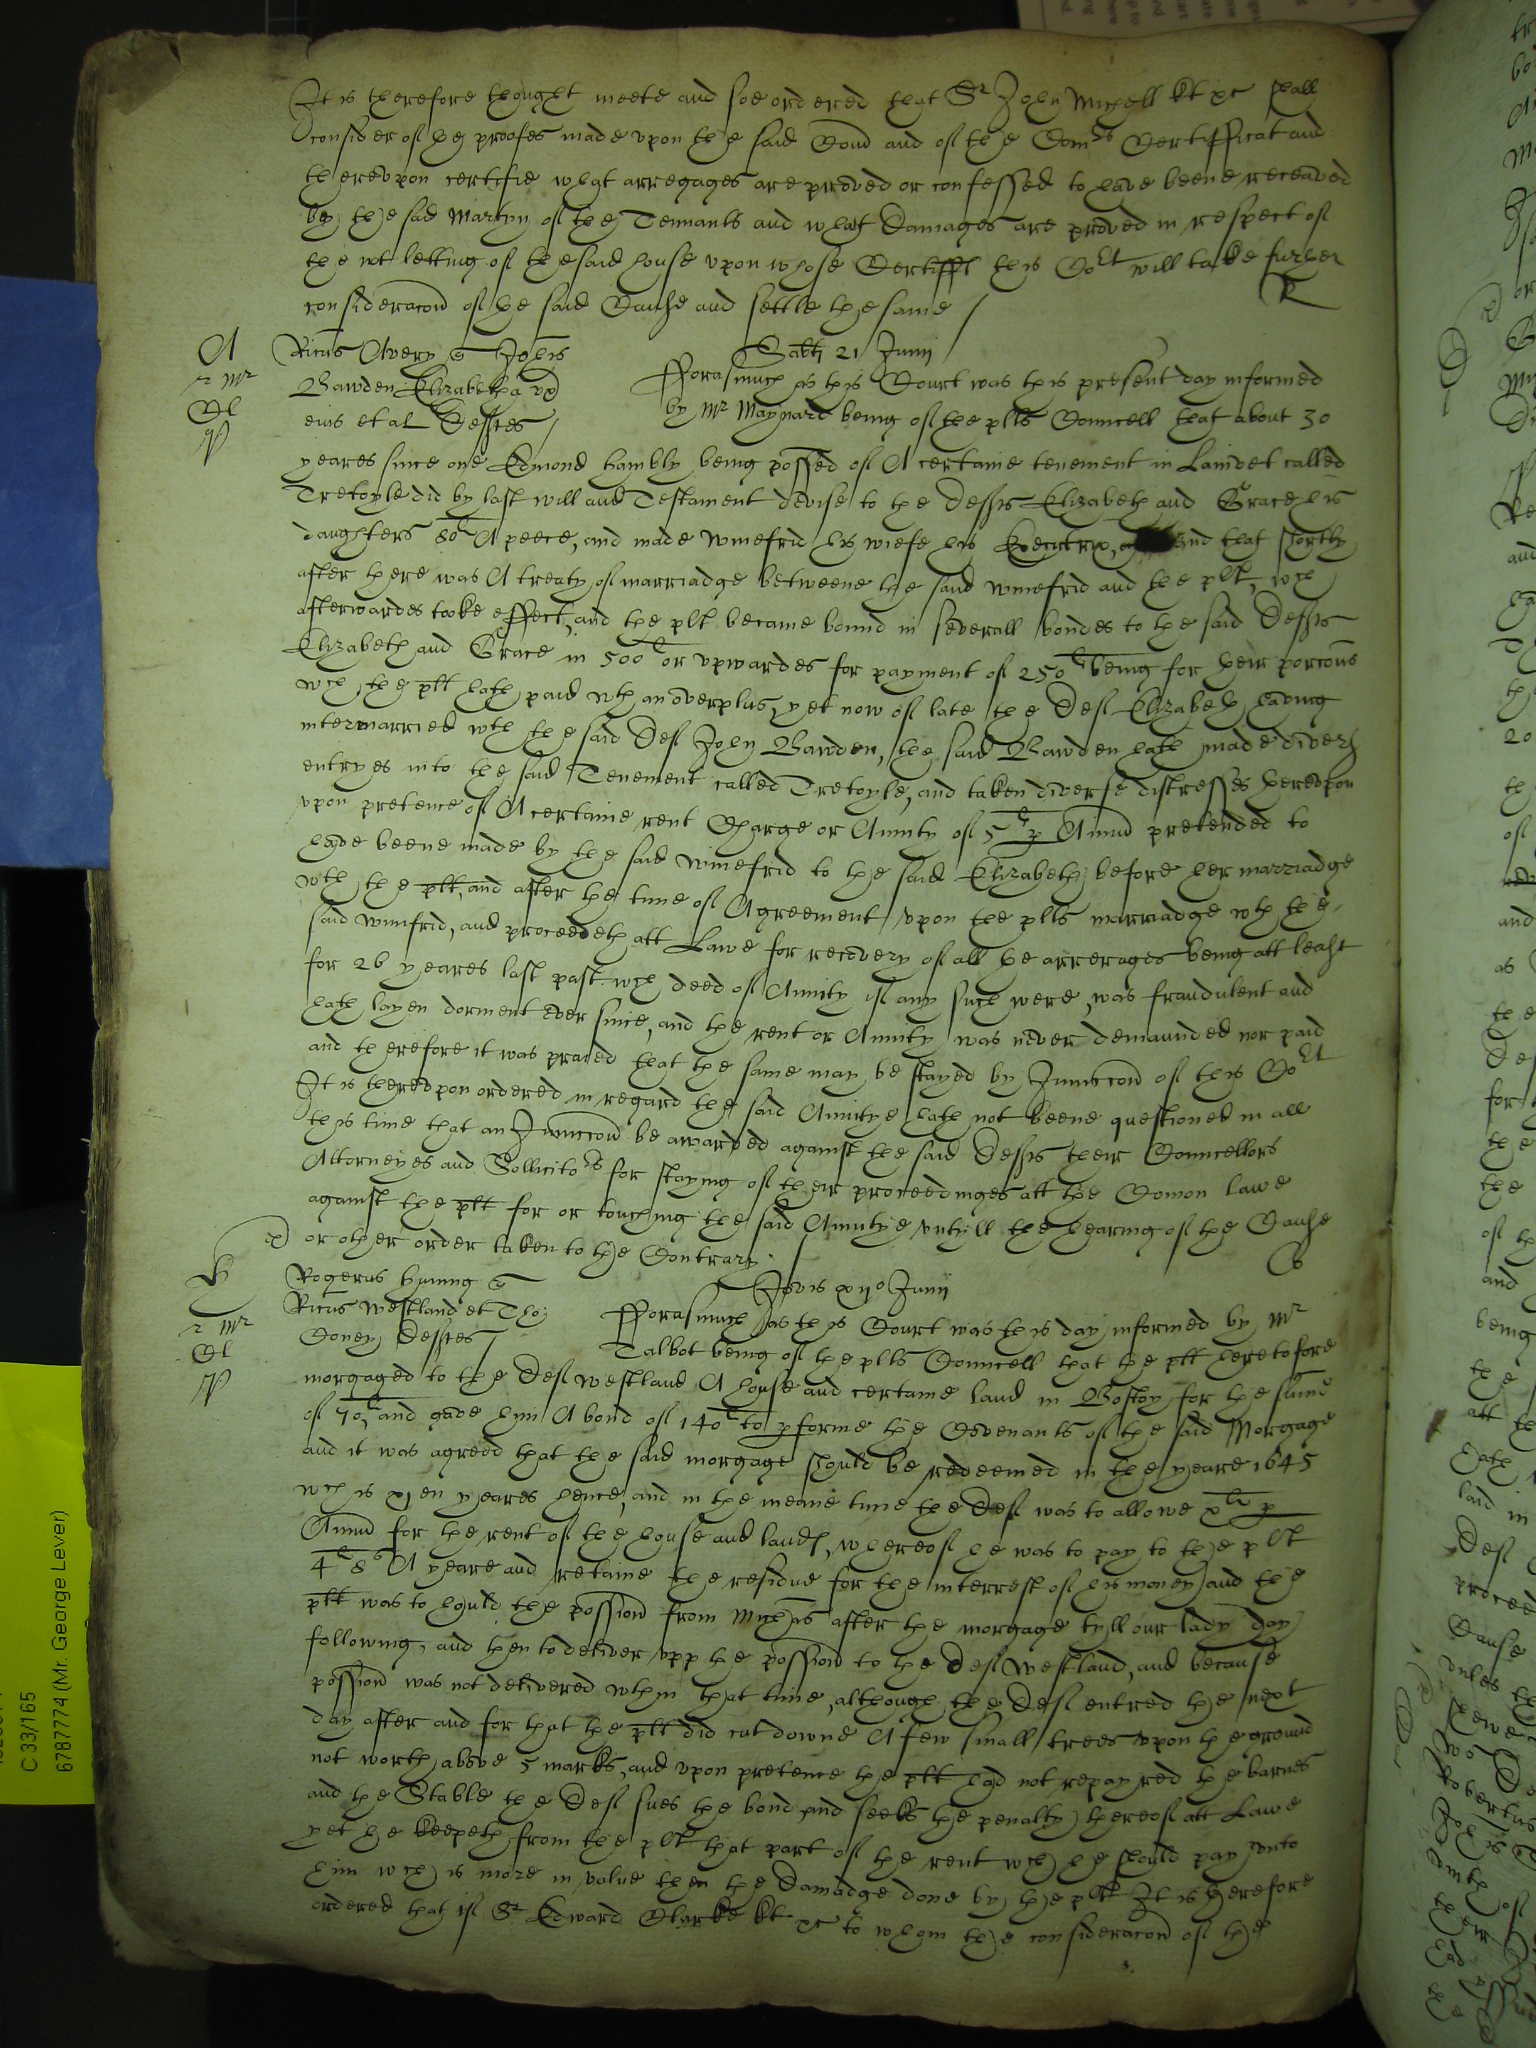 It is therefore thought meete and soe ordered that Sr John Michell kt &c shall
consider of the proofes made upon the said Comn and of the Comrs Certifficat and
thereupon certifie what arrerages are proved or confessed to have beene receaved
by the said Martyn of the Tennants and what damages are proved in respect of
the not letting of the said house upon whose Certifft this Cort will take further
consideracon of the said Cause and settle the same / R
A
r mr
Ricus Avery Johis
Bawden Elizabetha ux
eius et al Deftes /
Sabti 21 Junij
Forasmuch as this Court was this present day informed
by Mr Maynard being of the plts Councell that about 30
yeares since one Edmond Hambly being possed of A certaine tenement in Lanivet called
Tretoyle did by last will and Testament devise to the Defts Elizabeth and Grace his
daughters 80l A peece, and made Winefrid his wiefe his Executryx, and that shortly
after there was A treaty of marriadge betweene the said Winefrid and the plt, wch
afterwardes tooke effect, and the plt became bound in severall bondes to the said Defts
Elizabeth and Grace in 500l or upwardes for payment of 250l being for their porcons
wch the plt hath paid wth an overplus, yet now of late the Deft Elizabeth having
intermarried wth the said Deft John Bawden, the said Bawden hath made divers
entryes into the said Tenement called Tretoyle, and taken diverse distresses thereupon
upon pretence of A certaine rent Charge or Anuity of 5l p Annu pretended to
have beene made by the said Winefrid to the said Elizabeth before her marriadge
wth the plt, and after the time of Agreement upon the plts marriadge wth the
said Winifrid, and proceedeth att Lawe for recovery of all the arrerages being att least
for 26 yeares last past wch deed of Anuity if any such were, was fraudulent and
hath layen dorment ever since, and the rent or Anuity was never demaunded nor paid
and therefore it was praied that the same may be stayed by Iniunccon of this Cort
It is thereupon ordered in regard the said Anuitye hath not beene questioned in all
this time that an Iniunccon be awarded against the said Defts their Councellors
Attorneyes and Sollicitors for staying of their proceedinges att the Comon Lawe
against the plt for or touching the said Anuitye untyll the hearing of the Cause
or other order taken to the Contrary.
H
r mr
Rogerus Hyning
Ricus Westland et Tho:
Coney Deftes /
Jovis xijo Junij
Forasmuch as this Court was this day informed by Mr
Talbot being of the plts Councell that the plt heretofore
morgaged to the Deft Westland A house and certaine land in Boston for the sume
of 70l and gave him A bond of 140l to pforme the Covenants of the said Morgage
and it was agreed that the said morgage should be redeemed in the yeare 1645
wch is xj en yeares hence, and in the meane time the Deft was to allowe xli p
Annu for the rent of the house and land, whereof he was to pay to the plt
4l 8s A yeare and retaine the residue for the interrest of his money and the
plt was to hould the possion from Michas after the morgage tyll our lady day
following, and then to deliver upp the possion to the Deft Westland, and because
possion was not delivered wthin that time, although the Deft entred the next
day after and for that the plt did cut downe A few small trees upon the ground
not worth above 5 marks, and upon pretence the plt had not repayred the barnes
and the Stable the Deft sues the bond and seeks the penalty thereof att Lawe
yet he keepeth from the plt that part of the rent wch he should pay unto
him wch is more in value then the damadge done by the plt It is therefore
ordered that if Sr Edward Clarke kt &c to whom the consideracon of the
C 33/165
6787774 (Mr. George Lever)